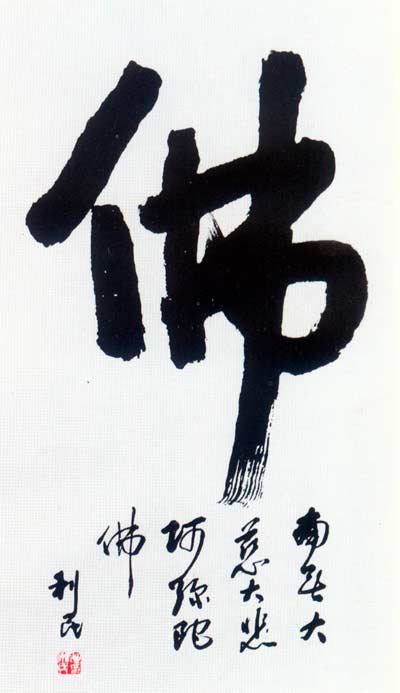 佛
南无大
慈大悲
阿弥陀
佛
利民